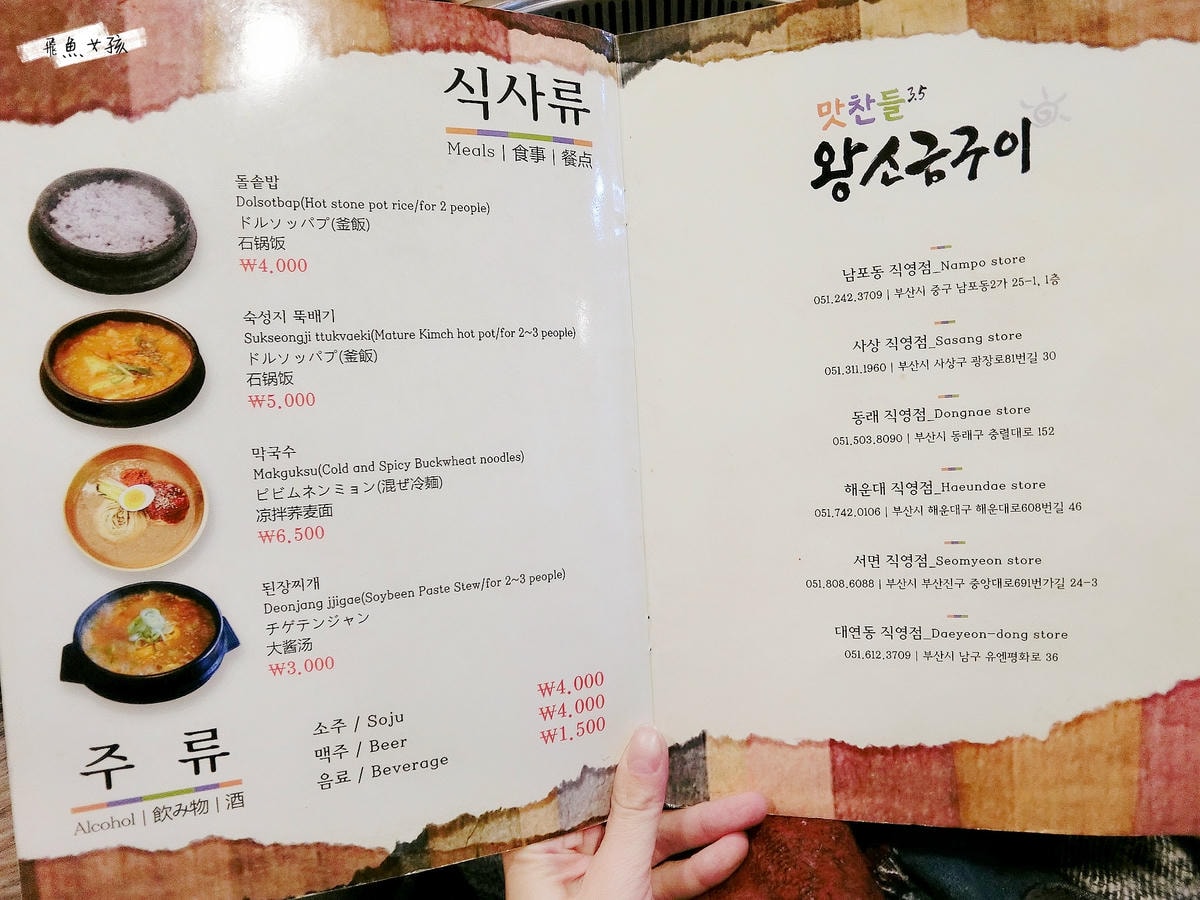 飛魚女孩
식사류
Meals | 食事 | 餐点
돌솥밥
Dolsotbap(Hot stone pot rice/for 2 people)
ドルソッパプ(釜飯)
石锅饭
₩4.000
숙성지 뚝배기
Sukseongji ttukvaeki(Mature Kimch hot pot/for 2~3 people)
ドルソッパプ(釜飯)
石锅饭
₩5.000
막국수
Makguksu(Cold and Spicy Buckwheat noodles)
ピビムネンミョン(混ぜ冷麺)
凉拌荞麦面
₩6.500
된장찌개
Deonjang jjigae(Soybeen Paste Stew/for 2~3 people)
チゲテンジャン
大酱汤
₩3.000
주 류
Alcohol | 飲み物 | 酒
소주 / Soju ₩4.000
맥주 / Beer ₩4.000
음료 / Beverage ₩1.500
맛찬들 3.5
왕소금구이
남포동 직영점_Nampo store
051.242.3709 | 부산시 중구 남포동2가 25-1, 1층
사상 직영점_Sasang store
051.311.1960 | 부산시 사상구 광장로81번길 30
동래 직영점_Dongnae store
051.503.8090 | 부산시 동래구 충렬대로 152
해운대 직영점_Haeundae store
051.742.0106 | 부산시 해운대구 해운대로608번길 46
서면 직영점_Seomyeon store
051.808.6088 | 부산시 부산진구 중앙대로691번가길 24-3
대연동 직영점_Daeyeon-dong store
051.612.3709 | 부산시 남구 유엔평화로 36